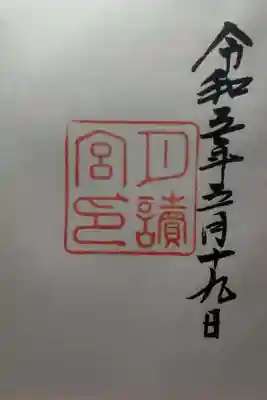 令和五年五月十九日
月讀
宮印